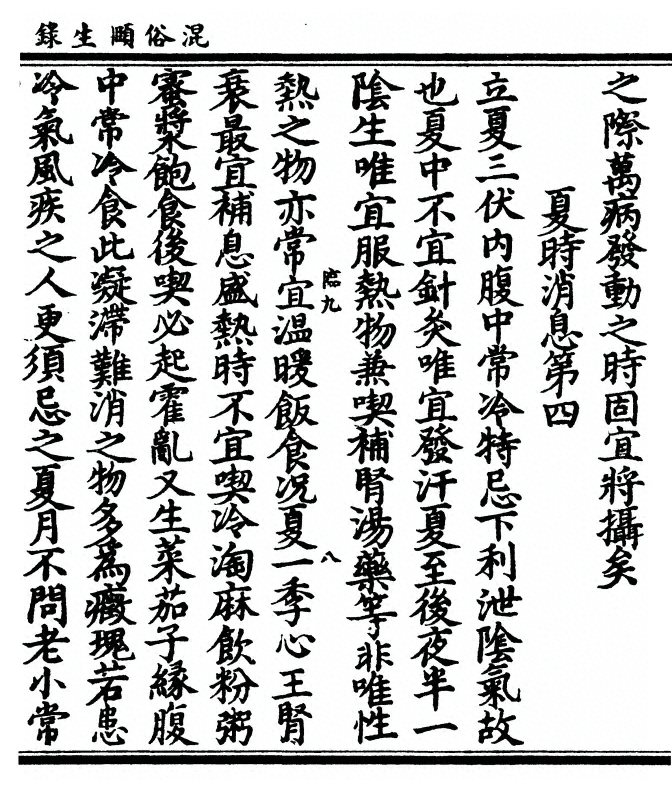 混俗頤生錄
之際萬病發動之時固宜將攝矣
夏時消息第四
立夏三伏內腹中常冷特忌下利泄陰氣故
也夏中不宜針灸唯宜發汗夏至後夜半一
陰生唯宜服熱物兼喫補腎湯藥等非唯性
臨九 八
熱之物亦常宜溫暖飯食况夏一季心王腎
衰最宜補息盛熱時不宜喫冷淘麻飲粉粥
蜜漿飽食後喫必起霍亂又生菜茄子緣腹
中常冷食此凝滯難消之物多為癥瑰若患
冷氣風疾之人更須忌之夏月不問老小常